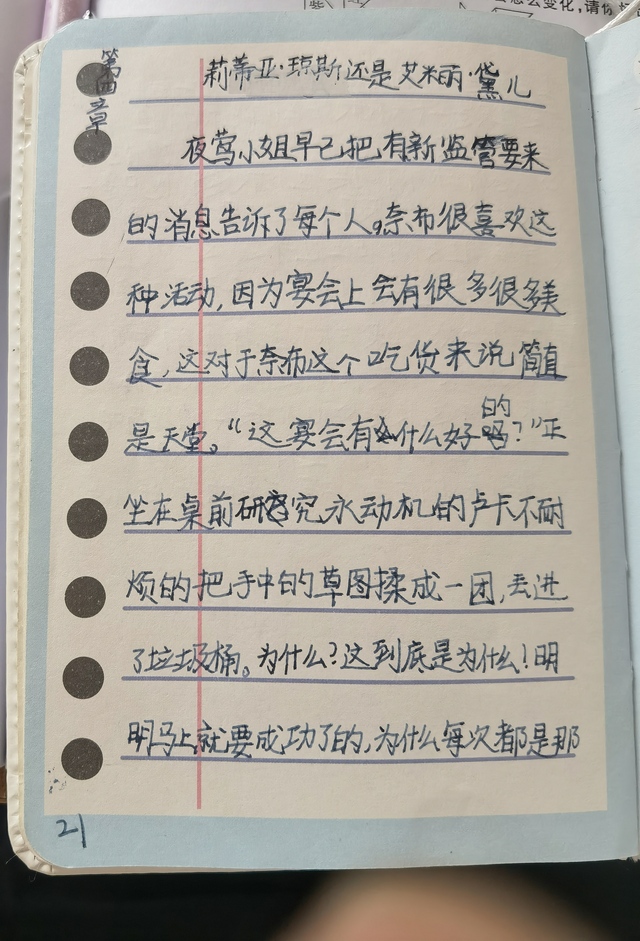 么变化,请你
第四章
莉蒂亚·琼斯还是艾米丽·黛儿
夜莺小姐早已把有新监管要来
的消息告诉了每个人。奈布很喜欢这
种活动,因为宴会上会有很多很多美
食,这对于奈布这个吃货来说简直
是天堂。“这宴会有什么好的?”正
坐在桌前研究永动机的卢卡不耐
烦的把手中的草图揉成一团,丢进
了垃圾桶。为什么?这到底是为什么!明
明马上就要成功了的,为什么每次都是那
21